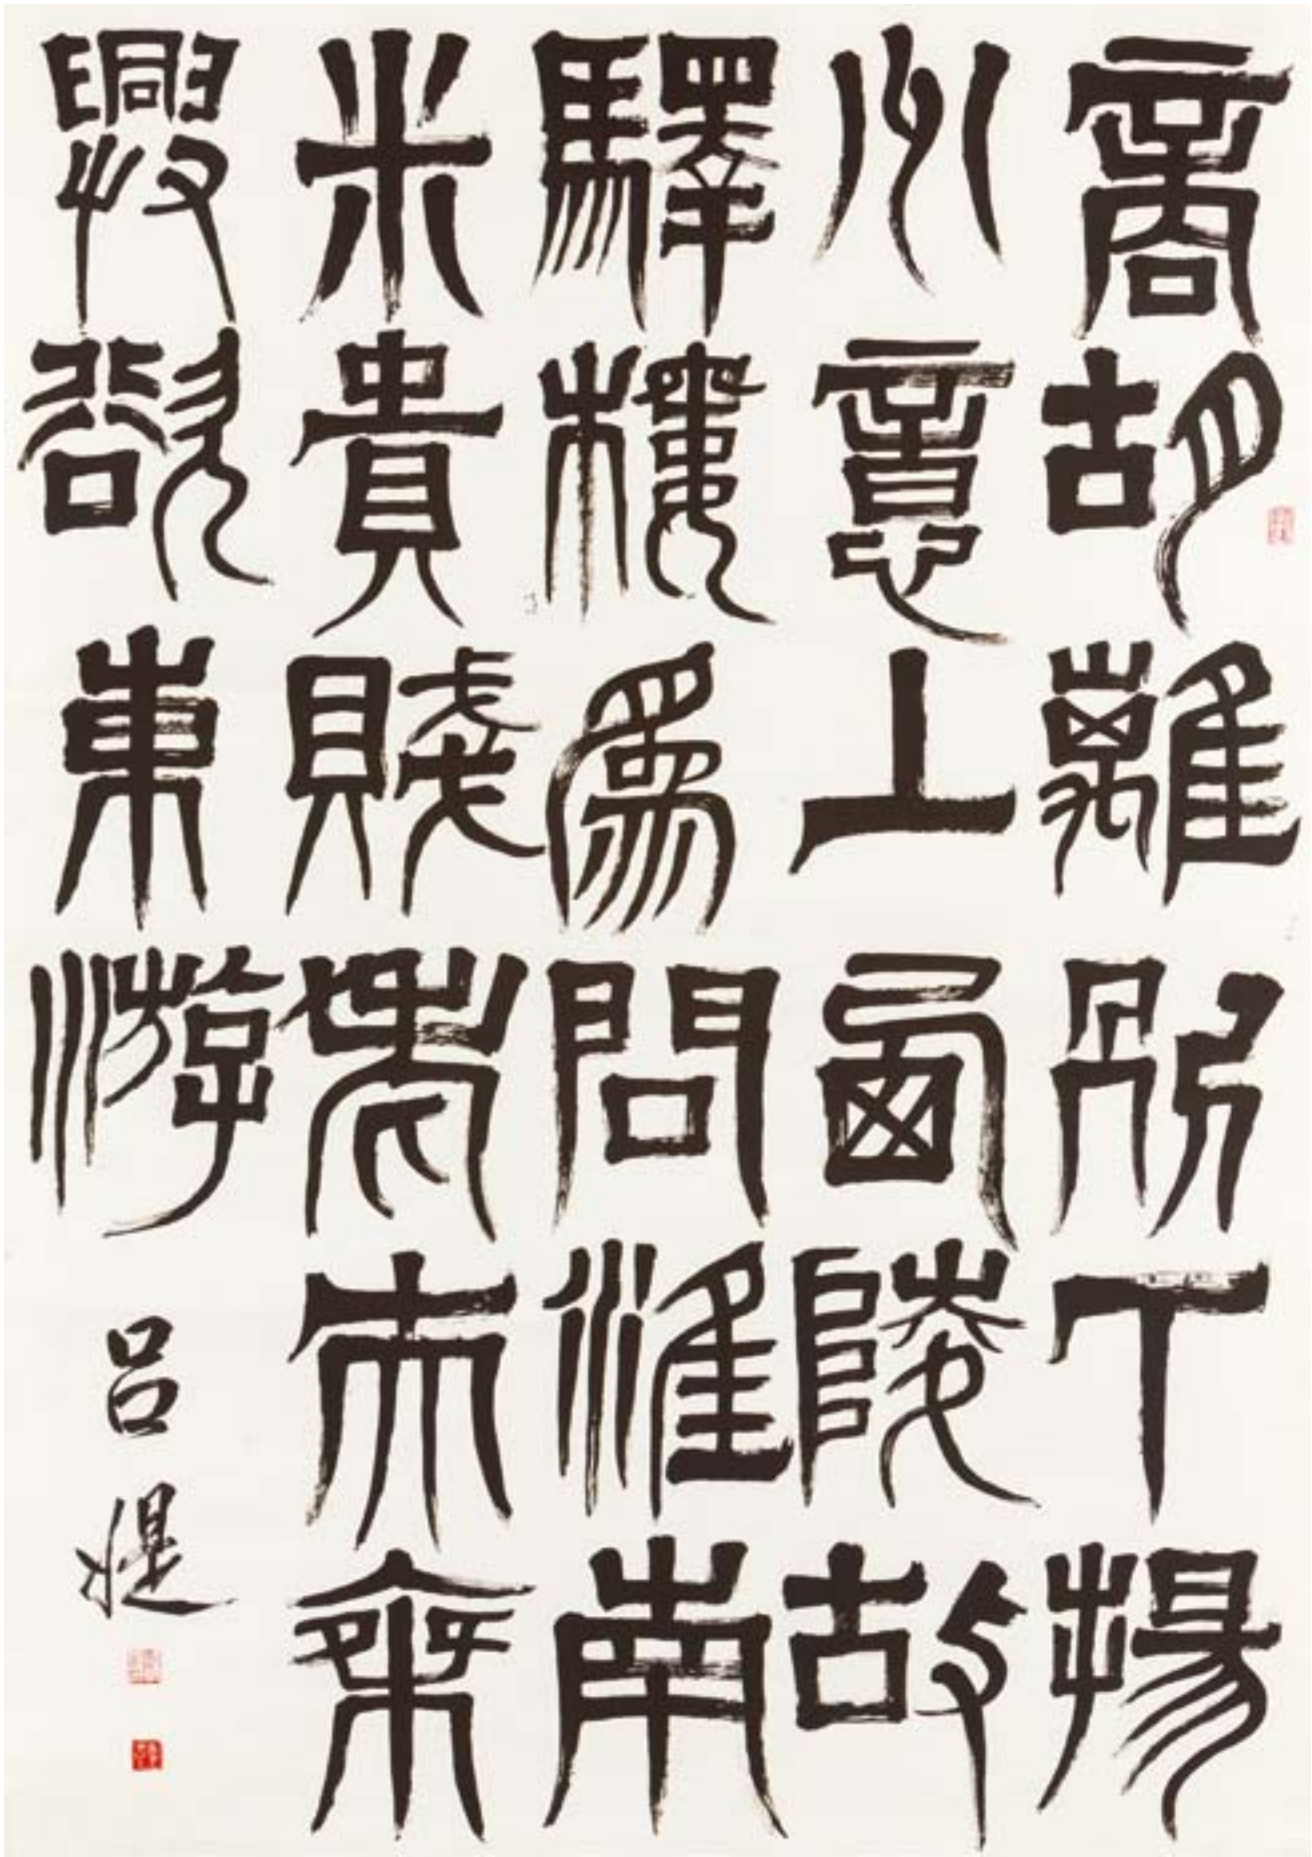 商胡離別下揚
州憶上西陵故
驛樓為問淮南
米貴賤老夫乘
興欲東游
呂媞